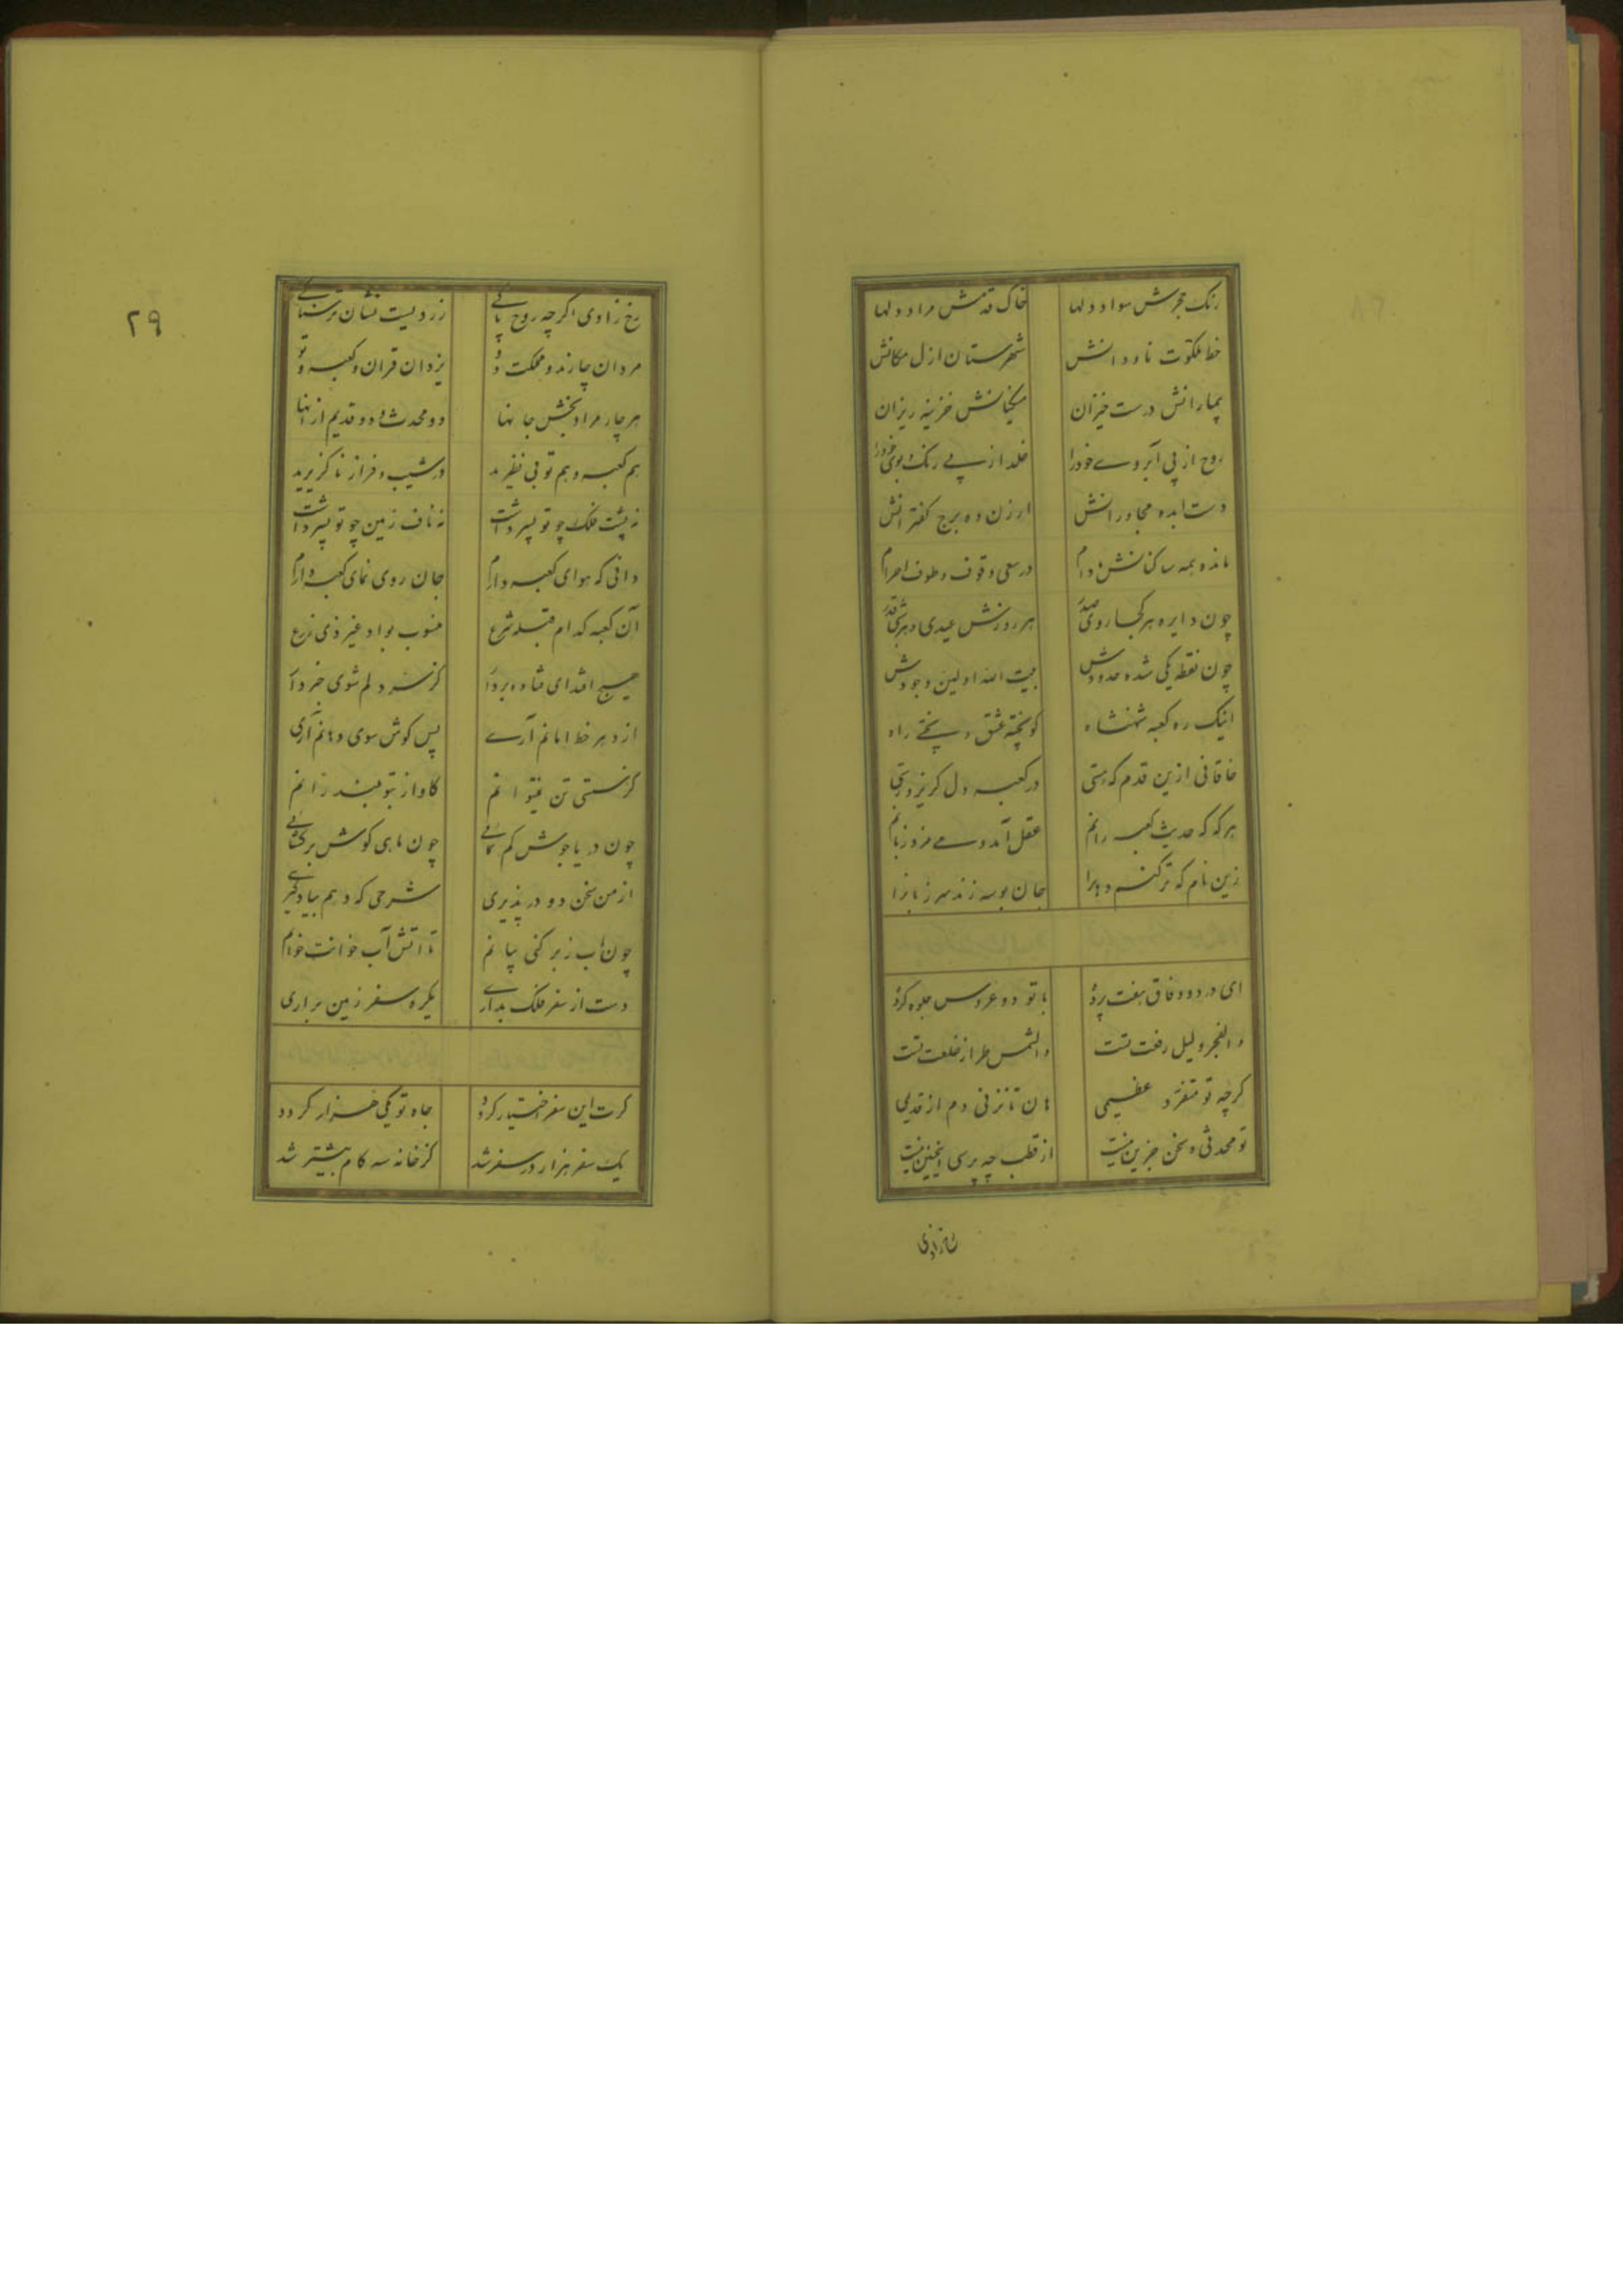 رنک حجرش سواد دلها خاک قدمش مراد دلها
خط ملکوت ناودانش شهرستان ازل مکانش
بیمارانش درست خیزان مسکینانش خزینه ریزان
روح از پی آبروے خودرا خلد از پے رنک و بوی خودرا
دست ابده مجاورانش ارزن ده برج کفترانش
مانده همه ساکنانش مادام در سعی و قوف و طوف احرام
چون دایره هر کجا روی صدر هر روزش عیدی و هر شبی قدر
چون نقطه یکی شده حدودش بیت الله اولین وجودش
اینک ره کعبه شهنشاه کو پخته عشق و پختے راه
خاقانی ازین قدم که هستی در کعبه دل کریز و رستی
هر که که حدیث کعبه رانم عقل آمد و مے مزد زبانم
زین نام که تر کنم دهانرا جان بوسه زند سر زبانرا
ای در دو وفاق هفت پرده با تو دو عروس جلوه کرده
والفجر و لیل رفعت تست والشمس طراز خلعت تست
کرچه تو متفرد عظیمی هان تا نزنی دم از قدیمی
تو محدثی و سخن جزین نیست از قطب چه پرسی اینچنین نیست
رخ زادی
۲۹
رخ زادی اکرچه روح پاکے زردیست نشان ترسناکے
مردان چارند و مملکت دو یزدان قران و کعبه و تو
هر چار مراد بخش جانها دو محدث و دو قدیم از آنها
هم کعبه و هم تو بی نظیرند در شیب و فراز ناکزیرند
نه پشت فلک چو تو پسر داشت نه ناف زمین چو تو پسر داشت
دانی که هوای کعبه دارم جان روی نمای کعبه دارم
آن کعبه که ام قبله شرع منسوب بواد غیر ذی زرع
هیچ افتدای کز سر دلم شوی خبر دار
از دهر خط امانم آرے پس کوش سوی دهانم آری
کز سستی تن نمیتوانم کاواز بتو رسد زبانم
چون دریا جوش کم نمائے چون ماهی کوش برکشائے
از من سخن دو در پذیری شرحی که دهم بیاد کیرے
چون آب زبر کنی بیانم تا آتش آب خوانت خوانم
دست از سفر فلک بدارے یکره سفر زمین براری
کرت این سفر اختیار کردد جاه تو یکی هزار کردد
یک سفر هزار در سفر شد کز خانه سه کام بیشتر شد